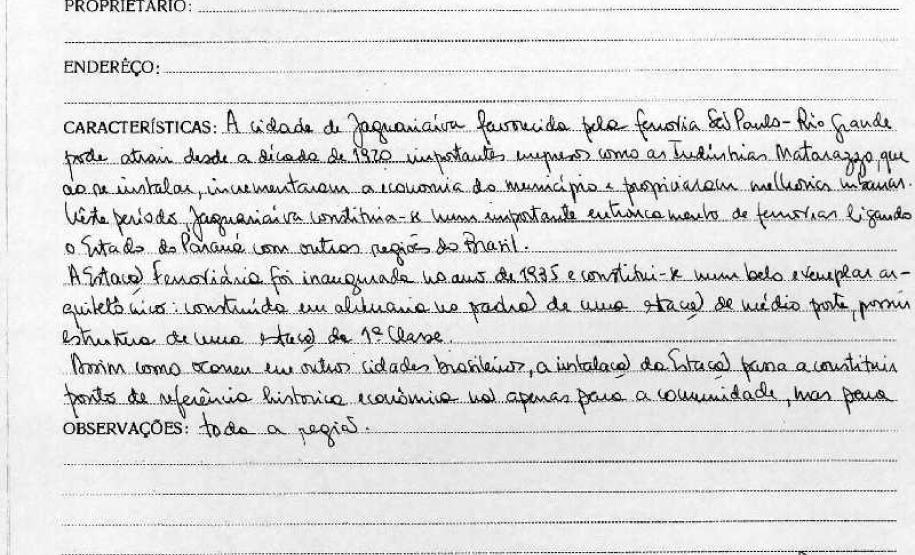 PROPRIETÁRIO:
ENDERÊÇO:
CARACTERÍSTICAS: A cidade de Jaguariaíva favorecida pela ferrovia São Paulo-Rio Grande
pode atrair desde a década de 1920 importantes empresas como as Indústrias Matarazzo, que
ao se instalar, incrementaram a economia do município e propiciaram melhorias urbanas.
Neste período Jaguariaíva constituia-se num importante entroncamento de ferrovias ligando
o Estado do Paraná com outras regiões do Brasil.
A Estação Ferroviária foi inaugurada no ano de 1935 e constitui-se num belo exemplar ar-
quitetônico: construída em alvenaria no padrão de uma estação de médio porte, possui
estrutura de uma estação de 1ª Classe.
Assim como ocorreu em outras cidades brasileiras, a instalação da Estação passa a constituir
ponto de referência historica econômica não apenas para a comunidade, mas para
OBSERVAÇÕES: toda a região.